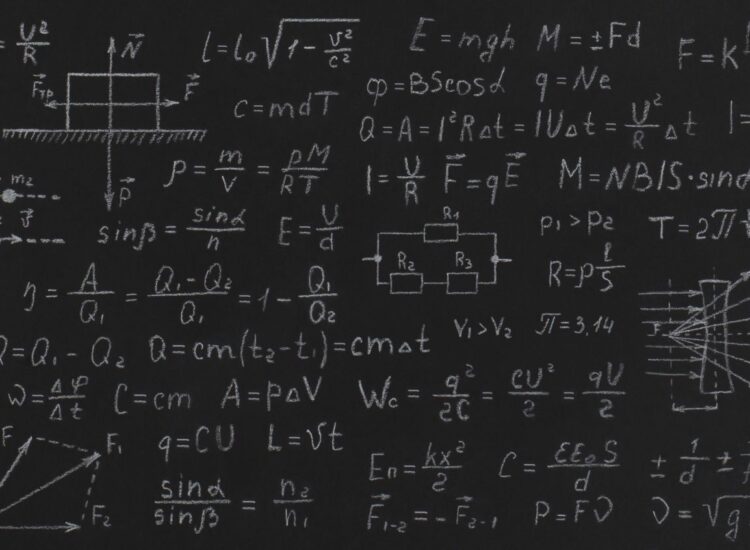 = υ²/R
N⃗
l = l₀√(1 - υ²/c²)
E = mgh
M = ±Fd
F = K
F⃗тр
F⃗
c = mdT
φ = BScosα
q = Ne
Q = A = I²RΔt = IUΔt = U²/R Δt
I =
ρ = m/V = pM/RT
I = U/R
F⃗ = qE⃗
M = NBIS·sinα
m₂
P⃗
υ⃗
sinβ = sinα/n
E = U/d
R₁
R₂
R₃
p₁ > p₂
T = 2π
R = ρ l/S
η = A/Q₁ = (Q₁ - Q₂)/Q₁ = 1 - Q₁/Q₂
V₁ > V₂
π = 3,14
F
Q = Q₁ - Q₂
Q = cm(t₂ - t₁) = cmΔt
ω = Δφ/Δt
C = cm
A = pΔV
Wc = q²/2C = CU²/2 = qU/2
F
F₁
F₂
q = CU
L = υt
Eп = kx²/2
C = εε₀S/d
± 1/d ±
sinα/sinβ = n₂/n₁
F⃗₁₋₂ = - F⃗₂₋₁
P = Fυ
υ = √g